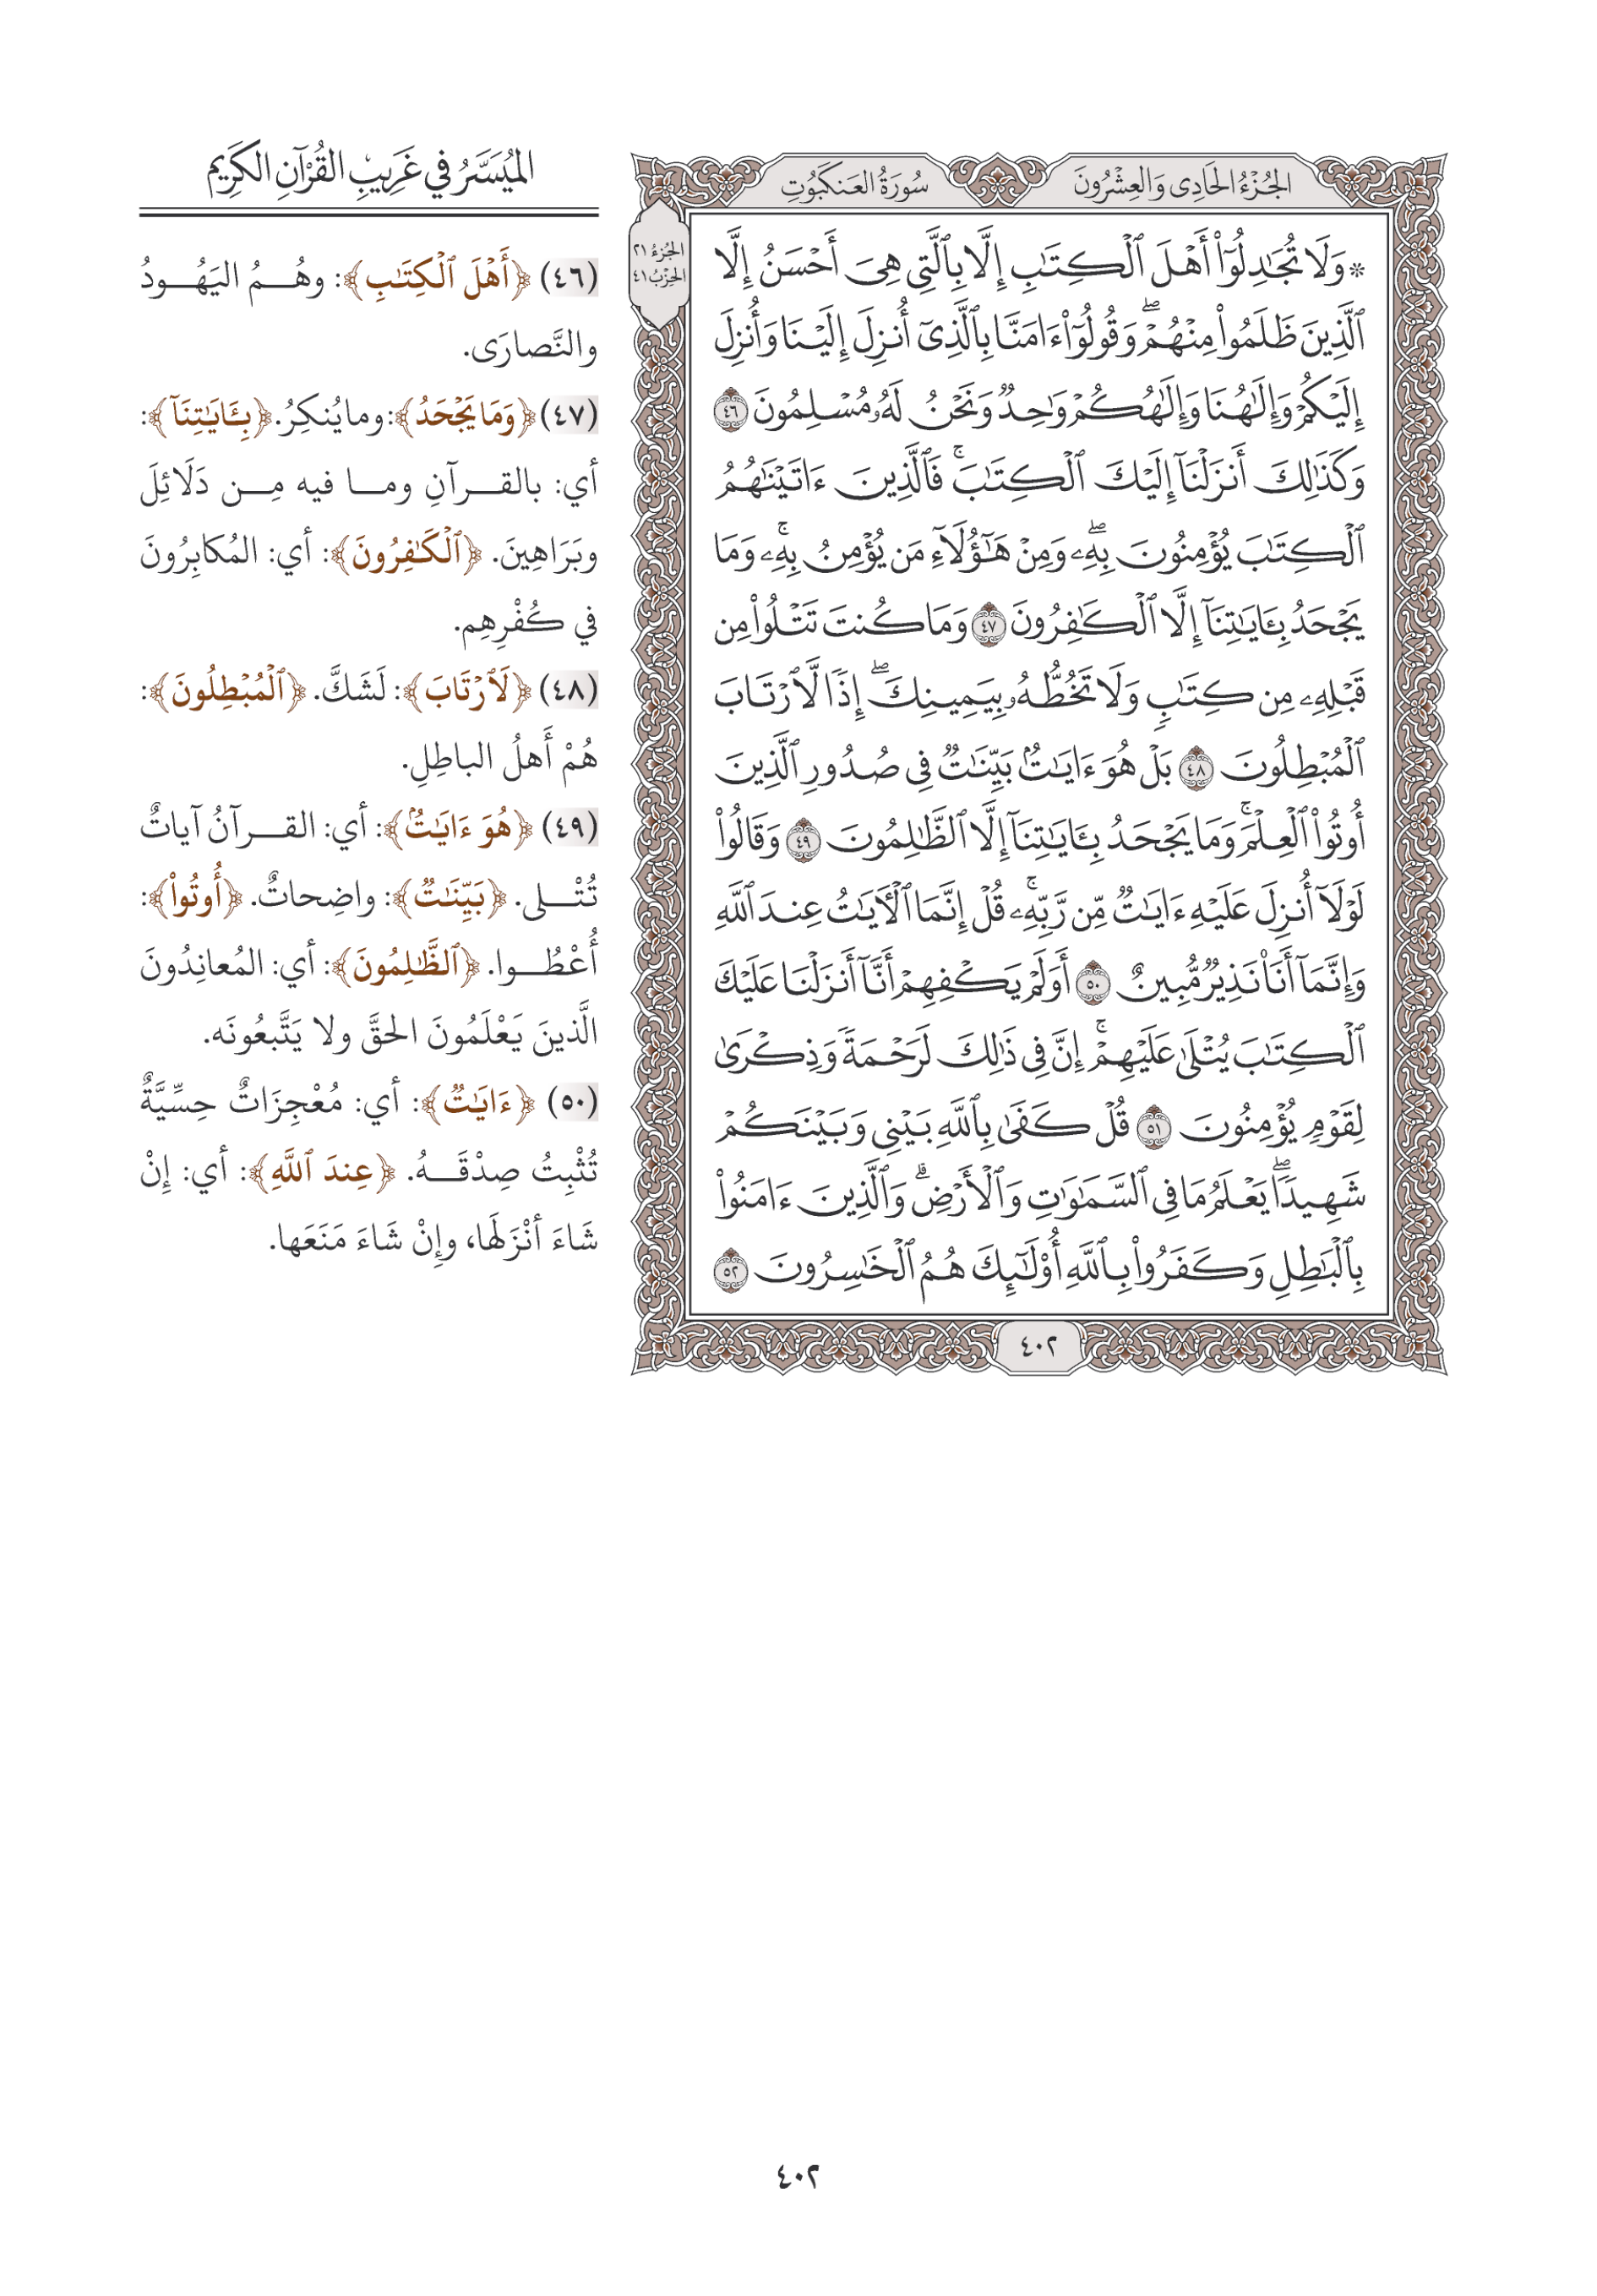 الجُزْءُ الحَادِى وَالعِشْرُونَ
سُورَةُ العَنكَبُوتِ
الجُزءُ ٢١
الحِزْبُ ٤١
* وَلَا تُجَٰدِلُوٓا۟ أَهْلَ ٱلْكِتَٰبِ إِلَّا بِٱلَّتِى هِىَ أَحْسَنُ إِلَّا
ٱلَّذِينَ ظَلَمُوا۟ مِنْهُمْ ۖ وَقُولُوٓا۟ ءَامَنَّا بِٱلَّذِىٓ أُنزِلَ إِلَيْنَا وَأُنزِلَ
إِلَيْكُمْ وَإِلَٰهُنَا وَإِلَٰهُكُمْ وَٰحِدٌ وَنَحْنُ لَهُۥ مُسْلِمُونَ ٤٦
وَكَذَٰلِكَ أَنزَلْنَآ إِلَيْكَ ٱلْكِتَٰبَ ۚ فَٱلَّذِينَ ءَاتَيْنَٰهُمُ
ٱلْكِتَٰبَ يُؤْمِنُونَ بِهِۦ ۖ وَمِنْ هَٰٓؤُلَآءِ مَن يُؤْمِنُ بِهِۦ ۚ وَمَا
يَجْحَدُ بِـَٔايَٰتِنَآ إِلَّا ٱلْكَٰفِرُونَ ٤٧ وَمَا كُنتَ تَتْلُوا۟ مِن
قَبْلِهِۦ مِن كِتَٰبٍ وَلَا تَخُطُّهُۥ بِيَمِينِكَ ۖ إِذًا لَّٱرْتَابَ
ٱلْمُبْطِلُونَ ٤٨ بَلْ هُوَ ءَايَٰتٌۢ بَيِّنَٰتٌ فِى صُدُورِ ٱلَّذِينَ
أُوتُوا۟ ٱلْعِلْمَ ۚ وَمَا يَجْحَدُ بِـَٔايَٰتِنَآ إِلَّا ٱلظَّٰلِمُونَ ٤٩ وَقَالُوا۟
لَوْلَآ أُنزِلَ عَلَيْهِ ءَايَٰتٌ مِّن رَّبِّهِۦ ۚ قُلْ إِنَّمَا ٱلْـَٔايَٰتُ عِندَ ٱللَّهِ
وَإِنَّمَآ أَنَا۠ نَذِيرٌ مُّبِينٌ ٥٠ أَوَلَمْ يَكْفِهِمْ أَنَّآ أَنزَلْنَا عَلَيْكَ
ٱلْكِتَٰبَ يُتْلَىٰ عَلَيْهِمْ ۚ إِنَّ فِى ذَٰلِكَ لَرَحْمَةً وَذِكْرَىٰ
لِقَوْمٍ يُؤْمِنُونَ ٥١ قُلْ كَفَىٰ بِٱللَّهِ بَيْنِى وَبَيْنَكُمْ
شَهِيدًا ۖ يَعْلَمُ مَا فِى ٱلسَّمَٰوَٰتِ وَٱلْأَرْضِ ۗ وَٱلَّذِينَ ءَامَنُوا۟
بِٱلْبَٰطِلِ وَكَفَرُوا۟ بِٱللَّهِ أُو۟لَٰٓئِكَ هُمُ ٱلْخَٰسِرُونَ ٥٢
٤٠٢
المُيَسَّرُ في غَرِيبِ القُرْآنِ الكَرِيم
(٤٦) ﴿أَهْلَ ٱلْكِتَٰبِ﴾: وهُمُ اليَهُودُ
والنَّصارَى.
(٤٧) ﴿وَمَا يَجْحَدُ﴾: وما يُنكِرُ. ﴿بِـَٔايَٰتِنَآ﴾:
أي: بالقرآنِ وما فيه مِن دَلَائِلَ
وبَرَاهِينَ. ﴿ٱلْكَٰفِرُونَ﴾: أي: المُكابِرُونَ
في كُفْرِهِم.
(٤٨) ﴿لَّٱرْتَابَ﴾: لَشَكَّ. ﴿ٱلْمُبْطِلُونَ﴾:
هُمْ أَهلُ الباطِلِ.
(٤٩) ﴿هُوَ ءَايَٰتٌۢ﴾: أي: القرآنُ آياتٌ
تُتْلى. ﴿بَيِّنَٰتٌ﴾: واضِحاتٌ. ﴿أُوتُوا۟﴾:
أُعْطُوا. ﴿ٱلظَّٰلِمُونَ﴾: أي: المُعانِدُونَ
الَّذينَ يَعْلَمُونَ الحقَّ ولا يَتَّبعُونَه.
(٥٠) ﴿ءَايَٰتٌ﴾: أي: مُعْجِزَاتٌ حِسِّيَّةٌ
تُثْبِتُ صِدْقَهُ. ﴿عِندَ ٱللَّهِ﴾: أي: إِنْ
شَاءَ أنْزَلَها، وإِنْ شَاءَ مَنَعَها.
٤٠٢